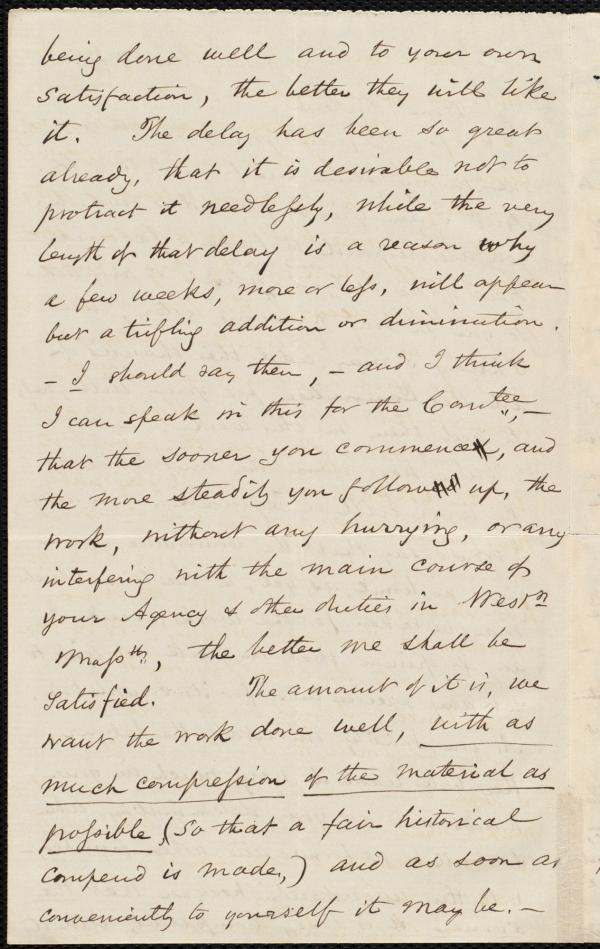 being done well and to your own
satisfaction, the better they will like
it. The delay has been so great
already, that it is desirable not to
protract it needlessly, while the very
length of that delay is a reason why
a few weeks, more or less, will appear
but a trifling addition or diminution.
- I should say then, - and I think
I can speak in this for the Comtee, -
that the sooner you commence, and
the more steadily you follow up, the
work, without any hurrying, or any
interfering with the main course of
your Agency & other duties in Westn
Massts, the better we shall be
satisfied. The amount of it is, we
want the work done well, with as
much compression of the material as
possible (so that a fair historical
compend is made,) and as soon as
conveniently to yourself it may be. -